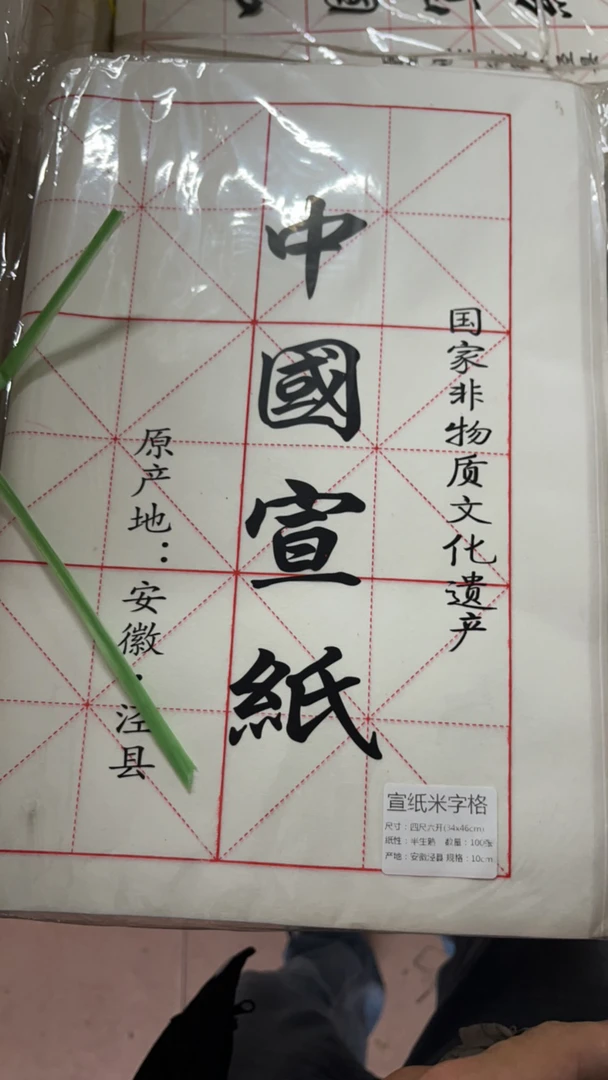 国家非物质文化遗产
中國宣紙
原产地：安徽·泾县
宣纸米字格
尺寸：四尺六开(34x46cm)
纸性：半生熟 数量：100张
产地：安徽泾县 规格：10cm